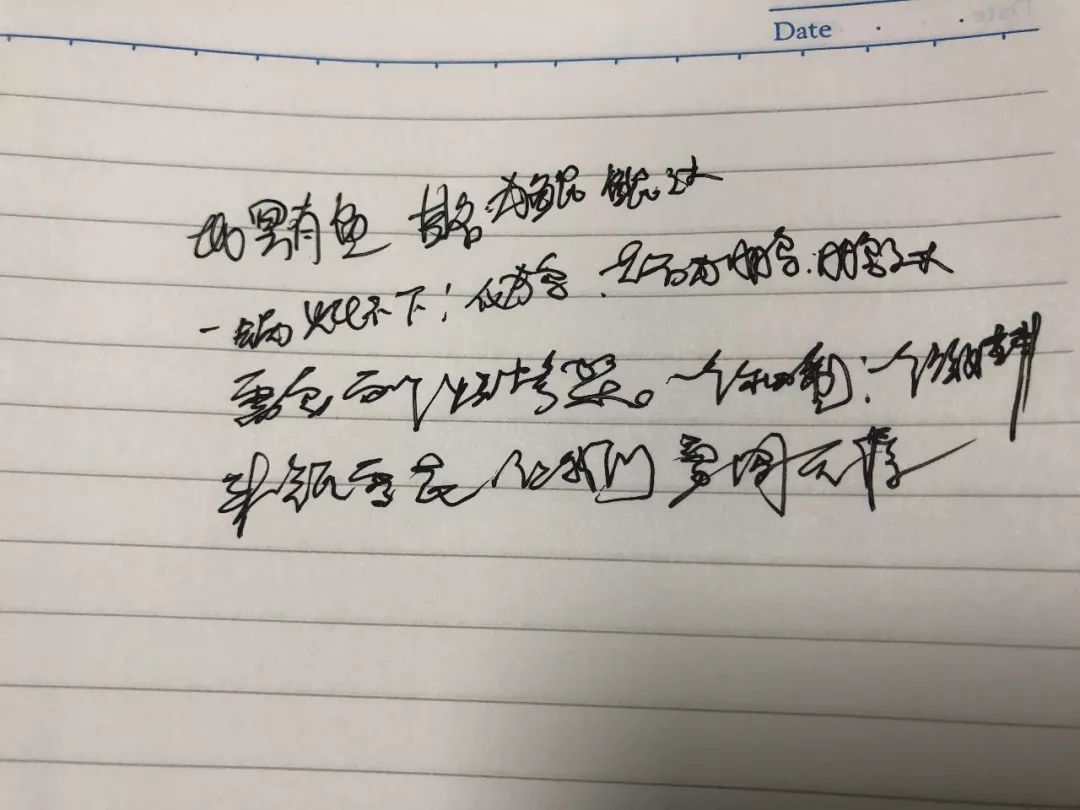 Date
北冥有鱼 其名为鲲 鲲之大
一锅炖不下；化为鸟，其名为鹏，鹏之大
需要两个烧烤架。一个秘制；一个微辣
来瓶雪花 让我们勇闯天涯